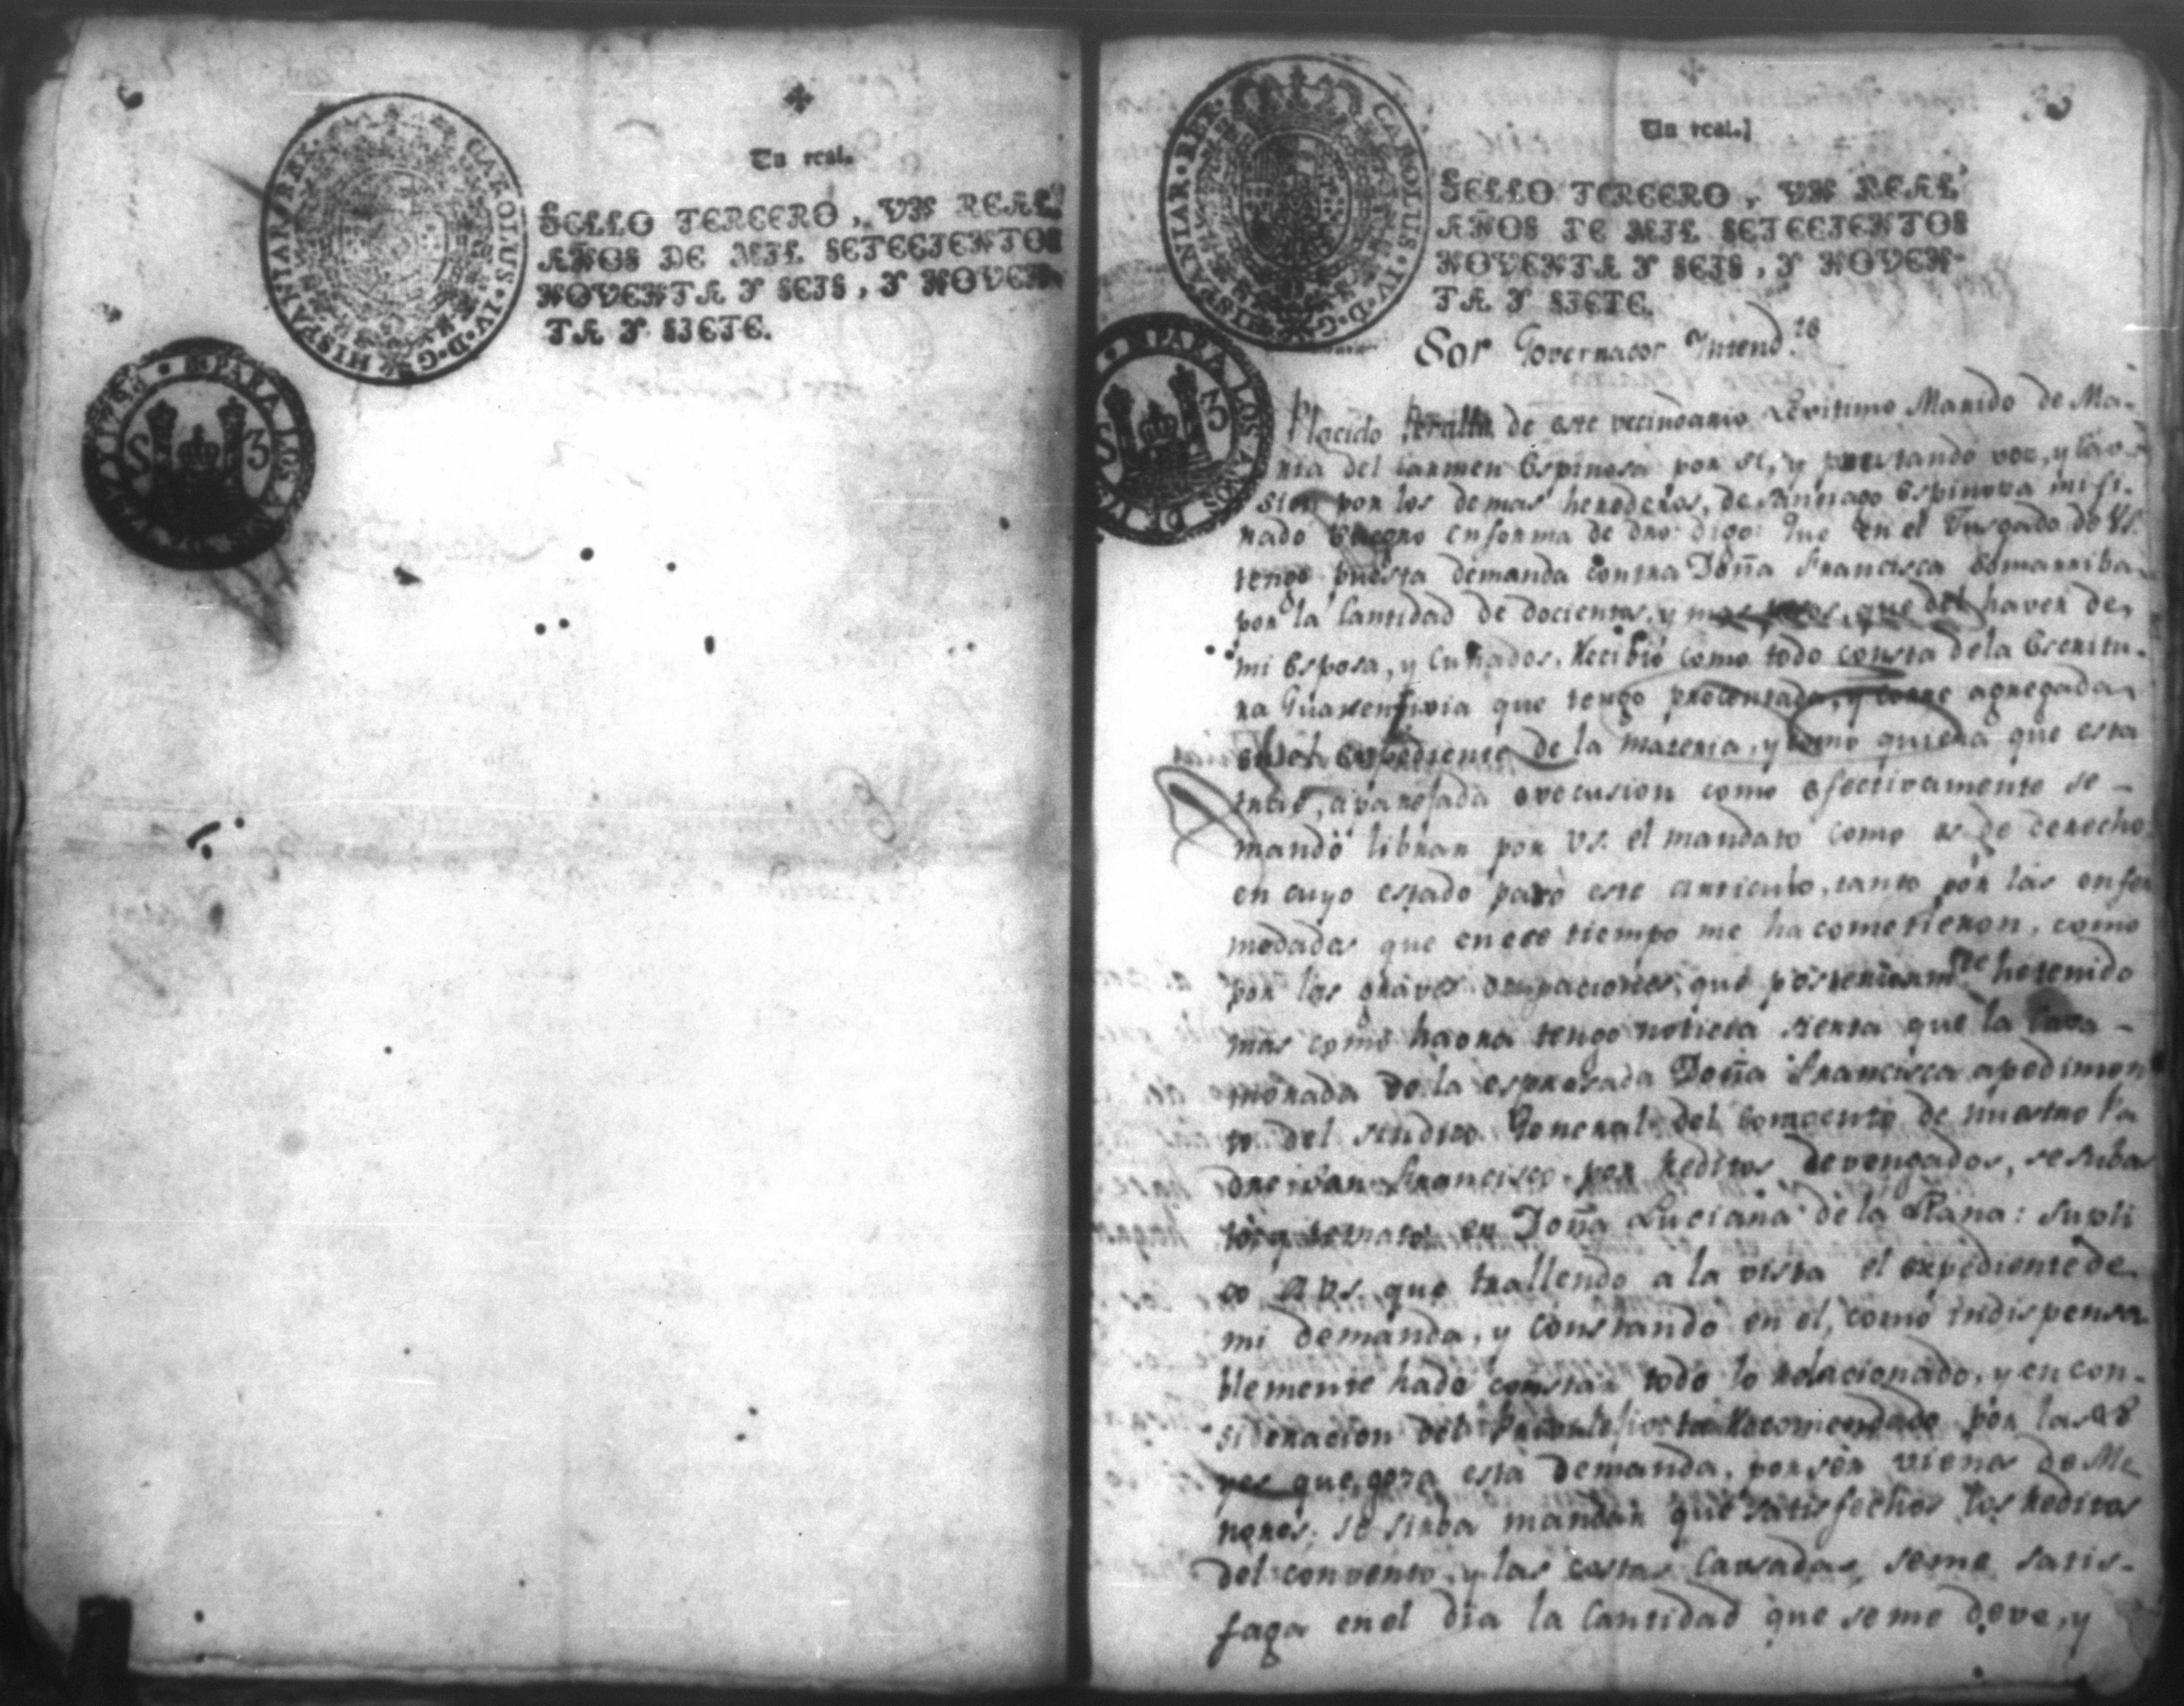 Un real.
SELLO TERCERO, VN REAL
AÑOS DE MIL SETECIENTOS
NOVENTA Y SEIS, Y NOVEN
TA Y SIETE.
CAROLUS·IV·D·G·HISPANIAR·REX·
PARA LOS AÑOS DE
S 3
33
Un real.
SELLO TERCERO, VN REAL
AÑOS DE MIL SETECIENTOS
NOVENTA Y SEIS, Y NOVEN-
TA Y SIETE.
CAROLUS·IV·D·G·HISPANIAR·REX·
PARA LOS AÑOS DE
S 3
Sor Governador Yntend.te
Placido Peralta de este vecindario Lexitimo Marido de Ma-
ria del Carmen Espinosa por si, y prestando voz, y cau-
sion por los demas herederos, de Santiago Espinosa mi fi-
nado Suegro en forma de dro. digo: Que en el Jusgado de VS.
tengo puesta demanda contra Doña Francisca Somarriba
por la Cantidad de docientos, y mas pesos, que del haver de
mi Esposa, y Cuñados, Recibió como todo consta de la Escritu-
ra Guarentivia que tengo precentada, y corre agregada
en el expediente de la materia, y como quiera que esta
trae, aparejada execusion como efectivamente se -
mandó librar por VS. el mandato como es de derecho
en cuyo estado paró este articulo, tanto por las enfer
medades que en ese tiempo me hacometieron, como
por las graves ocupaciones, que posteriorm.te he tenido
mas como haora tengo noticia sierta que la Casa -
morada de la espresada Doña Francisca a pedimen
to del sindico General del Comvento de nuestro Pa
dre San Francisco por Reditos devengados, se subas
tó y remató en Doña Luciana de la Plana: Supli
co a VS. que trallendo a la vista el expediente de
mi demanda, y constando en el, como indispensa
blemente hade constar todo lo relacionado, y en con-
sideracion del Privilejio tan Recomendado por las Le
yes que goza esta demanda, por ser vienes de Me
nores, se sirba mandar que satisfechos los Reditos
del convento, y las costas Causadas, seme satis-
faga en el dia la Cantidad que seme deve, y